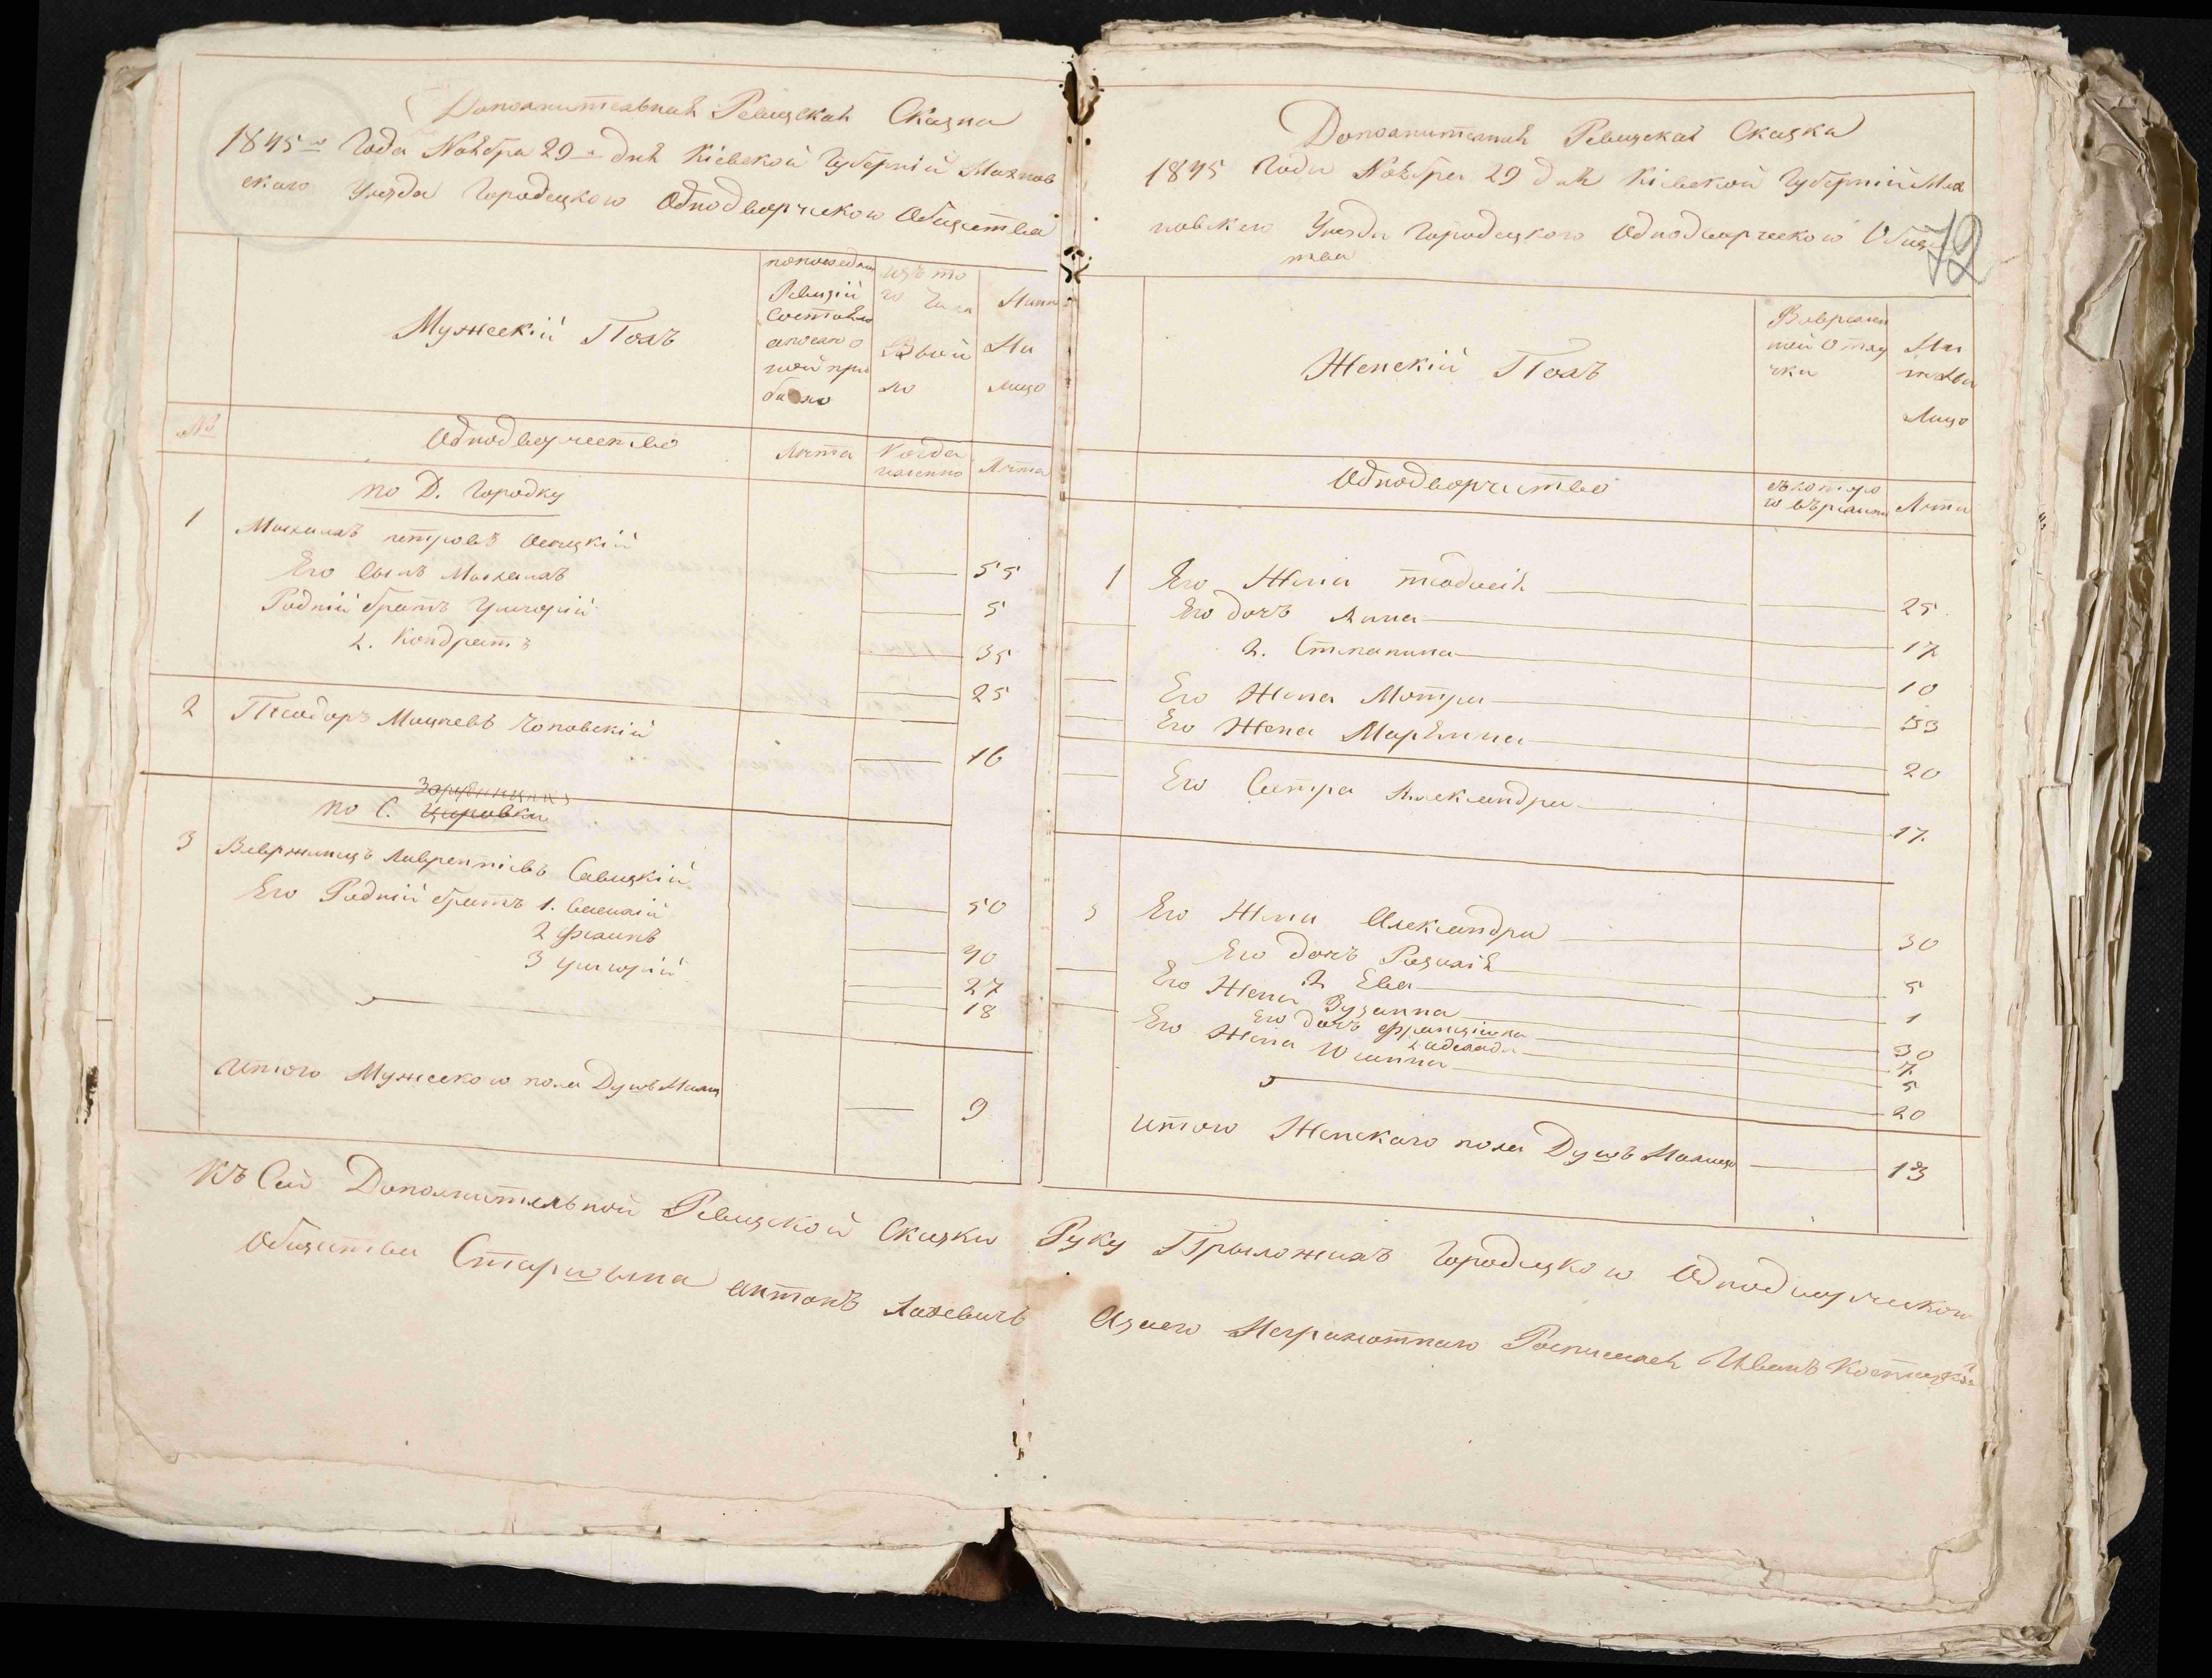 Дополнительная Ревизская Сказка
1845го Года Ноября 29го дня Кіевской Губерніи Махнов
скаго Уезда Городецкого Однодворческого Общества
Мужескій Полъ
Ревизіи
изъ то
го
ной при
было
но
Ни
лицо
№
Однодворчество
Лета
Когда
именно
Лета
по Д. Городку
1
Михаилъ петровъ Осецкій
55
Его Сынъ Михаилъ
5
Родній братъ Григорій
35
2. Кондратъ
25
2
Теодоръ
16
по С.
3
Лаврентіевъ Савицкій
50
Его Родній братъ 1. Василій
40
2 Филипъ
27
3 Григорій
18
Итого Мужеского пола Душъ Налицо
9
Дополнительная Ревизская Сказка
1845 Года Ноября 29 дня Кіевской Губерніи Мах
новского Уезда Городецкого Однодворческого Общес
тва
72
Женскій Полъ
Вовремен
ной Отлу
чки
На
Лицо
Однодворчество
съ которо
го времени
Лета
1
Его Жена теодосія
25
Его дочъ Анна
17
2. Степанина
10
Его Жена Мотра
33
Его Жена Маріянна
20
Его Систра Александра
17.
3
Его Жена Александра
30
Его дочъ Розалія
5
2 Ева
1
Его Жена Зузанна
30
Его дочъ Францішка
7
2 аделаида
5
Его Жена Юлианна
20
Итого Женскаго пола Душъ Налицо
13
Къ Сей Дополнительной Ревизской Сказки Руку Приложилъ Городецкого Однодворческого
Общества Старшына антонъ Азаего Неграмотнаго Росписался Иванъ